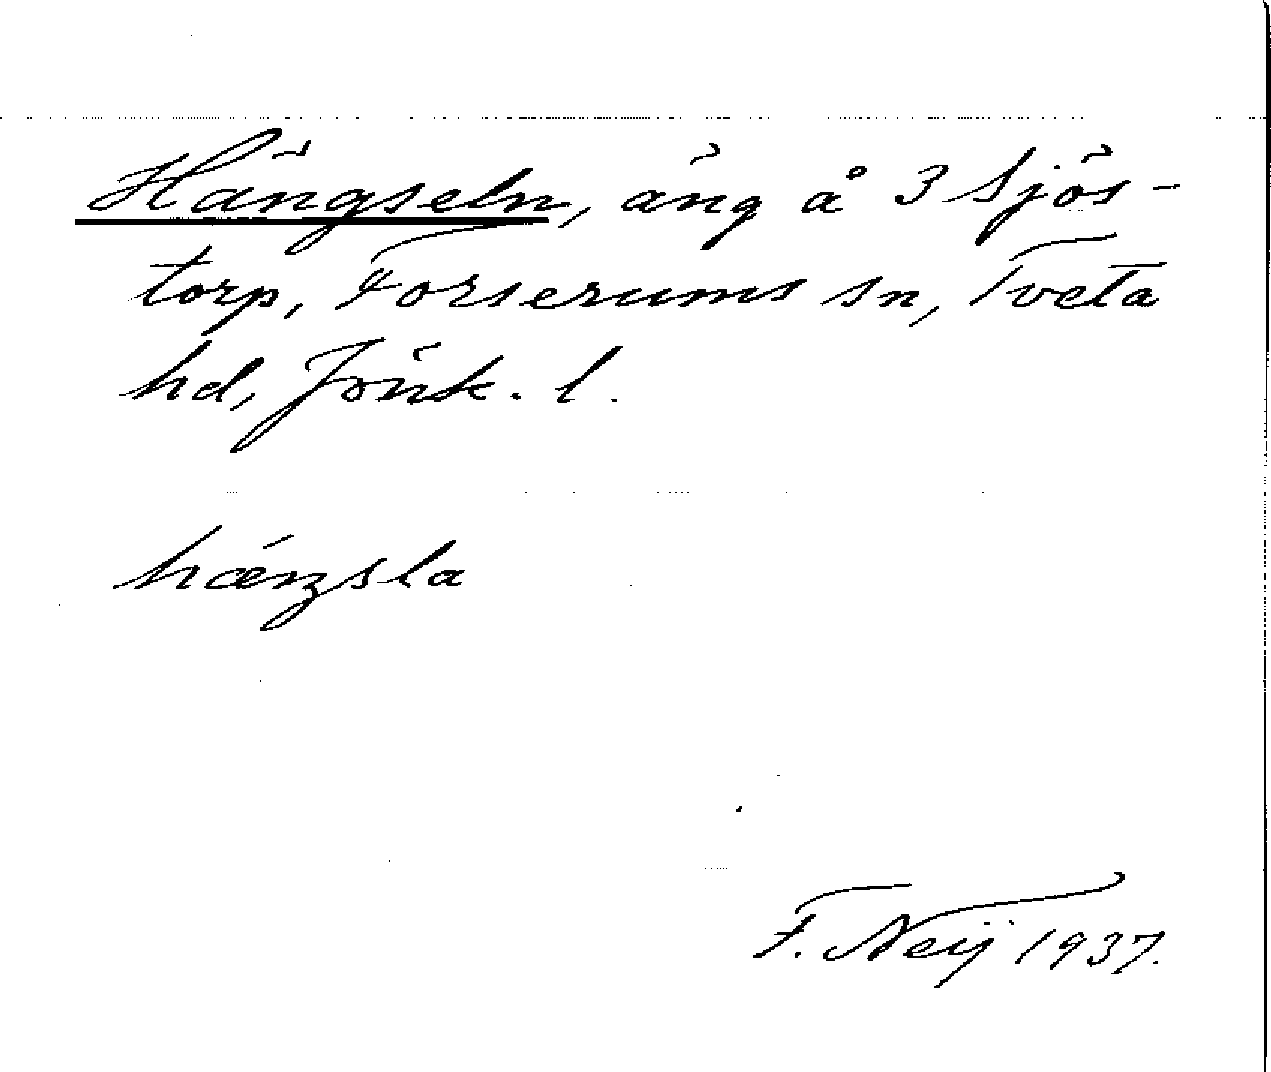 Hängseln, äng å 3 Sjös-
torp, Forserums sn, Tveta
hd, Jönk. l.
hǽnzsla
F. Neij 1937.